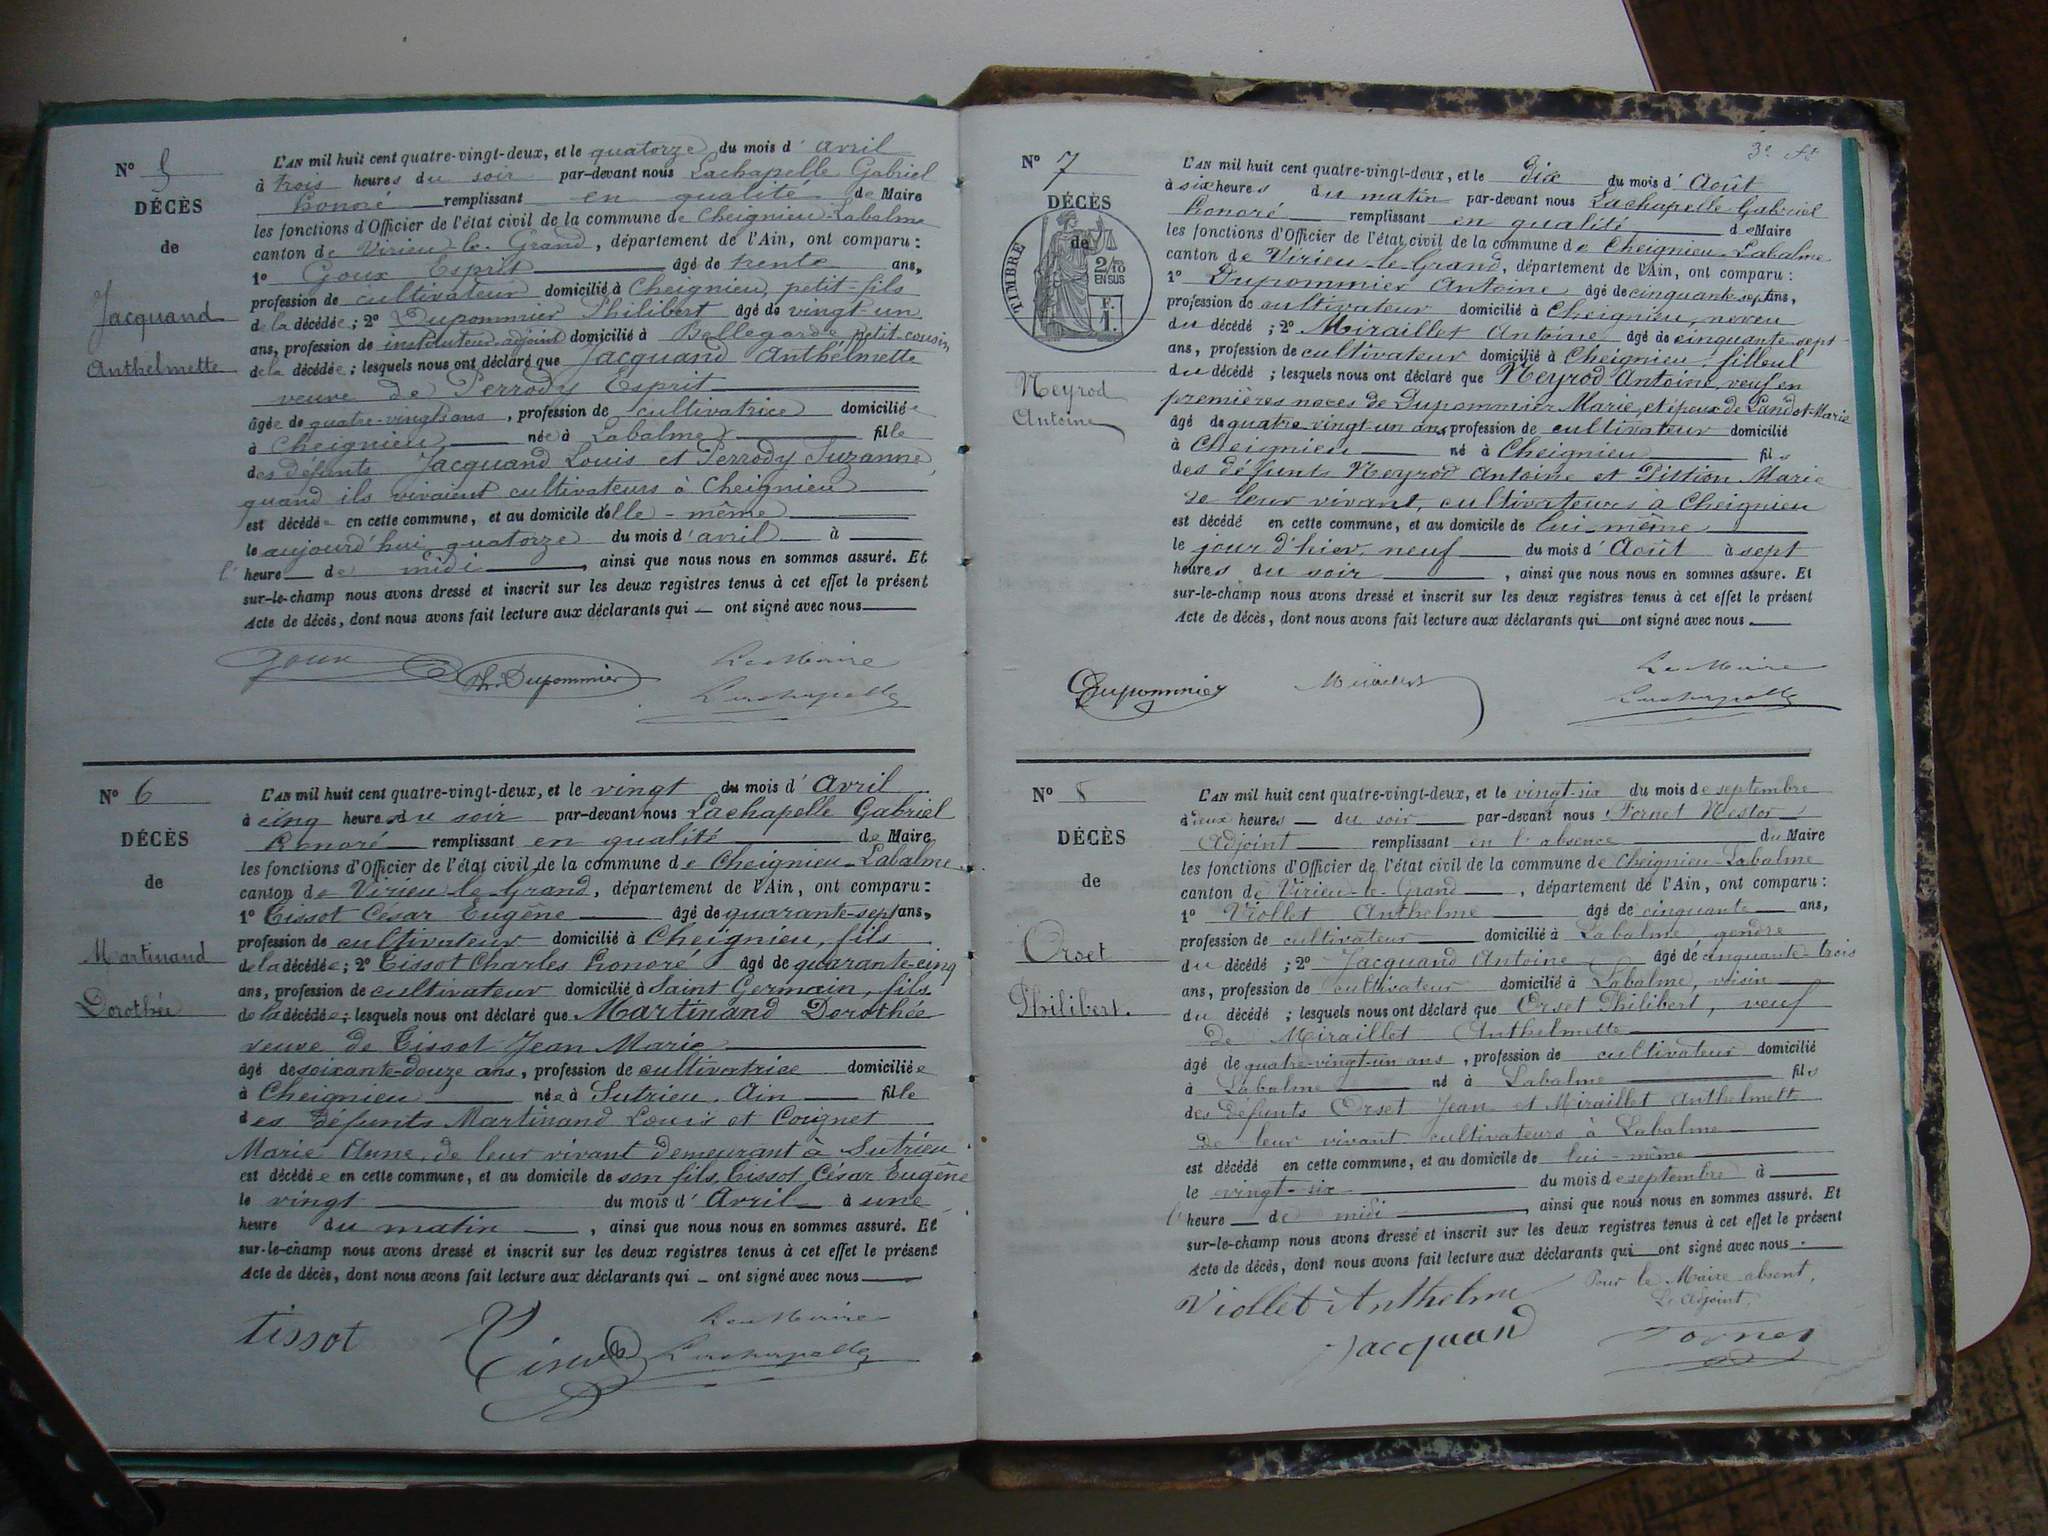 N° 5
DÉCÈS
de
Jacquand
Anthelmette
L'AN mil huit cent quatre-vingt-deux, et le quatorze du mois d' avril
à trois heures du soir par-devant nous Lachapelle Gabriel
honoré remplissant en qualité de Maire
les fonctions d'Officier de l'état civil de la commune de Cheignieu-Labalme
canton de Virieu-le-Grand, département de l'Ain, ont comparu :
1° Goux Esprit âgé de trente ans,
profession de cultivateur domicilié à Cheignieu, petit-fils
de la décédée ; 2° Dupommier Philibert âgé de vingt-un
ans, profession de instituteur-adjoint domicilié à Bellegarde, petit-cousin
de la décédée ; lesquels nous ont déclaré que Jacquand Anthelmette
veuve de Perrody Esprit
âgée de quatre-vingts ans, profession de cultivatrice domiciliée
à Cheignieu née à Labalme fille
des défunts Jacquand Louis et Perrody Suzanne,
quand ils vivaient cultivateurs à Cheignieu
est décédée en cette commune, et au domicile d'elle-même
le aujourd'hui quatorze du mois d'avril à
l'heure de midi, ainsi que nous nous en sommes assuré. Et
sur-le-champ nous avons dressé et inscrit sur les deux registres tenus à cet effet le présent
Acte de décès, dont nous avons fait lecture aux déclarants qui ont signé avec nous
Goux Ph. Dupommier Le Maire
Lachapelle
N° 6
DÉCÈS
de
Martinand
Dorothée
L'AN mil huit cent quatre-vingt-deux, et le vingt du mois d' Avril
à cinq heures du soir par-devant nous Lachapelle Gabriel
honoré remplissant en qualité de Maire
les fonctions d'Officier de l'état civil de la commune de Cheignieu-Labalme
canton de Virieu-le-Grand, département de l'Ain, ont comparu :
1° Tissot César Eugène âgé de quarante-sept ans,
profession de cultivateur domicilié à Cheignieu, fils
de la décédée ; 2° Tissot Charles honoré âgé de quarante-cinq
ans, profession de cultivateur domicilié à Saint Germain, fils
de la décédée ; lesquels nous ont déclaré que Martinand Dorothée
veuve de Tissot Jean Marie
âgé de soixante-douze ans, profession de cultivatrice domiciliée
à Cheignieu née à Sutrieu, Ain fille
des défunts Martinand Louis et Coignet
Marie Anne, de leur vivant demeurant à Sutrieu
est décédée en cette commune, et au domicile de son fils, Tissot César Eugène
le vingt du mois d' Avril à une
heure du matin, ainsi que nous nous en sommes assuré. Et
sur-le-champ nous avons dressé et inscrit sur les deux registres tenus à cet effet le présent
Acte de décès, dont nous avons fait lecture aux déclarants qui ont signé avec nous
tissot Le Maire
Lachapelle
3e
N° 7
DÉCÈS
de
TIMBRE
2/10
EN SUS
Neyrod
Antoine
L'AN mil huit cent quatre-vingt-deux, et le dix du mois d' Août
à six heures du matin par-devant nous Lachapelle Gabriel
honoré remplissant en qualité de Maire
les fonctions d'Officier de l'état civil de la commune de Cheignieu-Labalme
canton de Virieu-le-Grand, département de l'Ain, ont comparu :
1° Dupommier Antoine âgé de cinquante-sept ans,
profession de cultivateur domicilié à Cheignieu, neveu
du décédé ; 2° Miraillet Antoine âgé de cinquante-sept
ans, profession de cultivateur domicilié à Cheignieu, filleul
du décédé ; lesquels nous ont déclaré que Neyrod Antoine, veuf en
premières noces de Dupommier Marie, et époux de Landot-Marie
âgé de quatre-vingt-un ans, profession de cultivateur domicilié
à Cheignieu né à Cheignieu fils
des défunts Neyrod Antoine et Pittion Marie
de leur vivant, cultivateurs à Cheignieu
est décédé en cette commune, et au domicile de lui-même
le jour d'hier, neuf du mois d' Août à sept
heures du soir, ainsi que nous nous en sommes assuré. Et
sur-le-champ nous avons dressé et inscrit sur les deux registres tenus à cet effet le présent
Acte de décès, dont nous avons fait lecture aux déclarants qui ont signé avec nous.
Dupommier Miraillet Le Maire
Lachapelle
N° 8
DÉCÈS
de
Orset
Philibert.
L'AN mil huit cent quatre-vingt-deux, et le vingt-six du mois de septembre
à deux heures du soir par-devant nous Fornet Nestor
Adjoint remplissant en l'absence du Maire
les fonctions d'Officier de l'état civil de la commune de Cheignieu-Labalme
canton de Virieu-le-Grand, département de l'Ain, ont comparu :
1° Viollet Anthelme âgé de cinquante ans,
profession de cultivateur domicilié à Labalme gendre
du décédé ; 2° Jacquand Antoine âgé de cinquante-trois
ans, profession de cultivateur domicilié à Labalme, voisin
du décédé ; lesquels nous ont déclaré que Orset Philibert, veuf
de Miraillet Anthelmette
âgé de quatre-vingt-un ans, profession de cultivateur domicilié
à Labalme né à Labalme fils
des défunts Orset Jean et Miraillet Anthelmett
de leur vivant cultivateurs à Labalme
est décédé en cette commune, et au domicile de lui-même
le vingt-six du mois de septembre à
l'heure de midi, ainsi que nous nous en sommes assuré. Et
sur-le-champ nous avons dressé et inscrit sur les deux registres tenus à cet effet le présent
Acte de décès, dont nous avons fait lecture aux déclarants qui ont signé avec nous.
Viollet Anthelme Pour le Maire absent,
L'Adjoint,
Jacquand Fornet